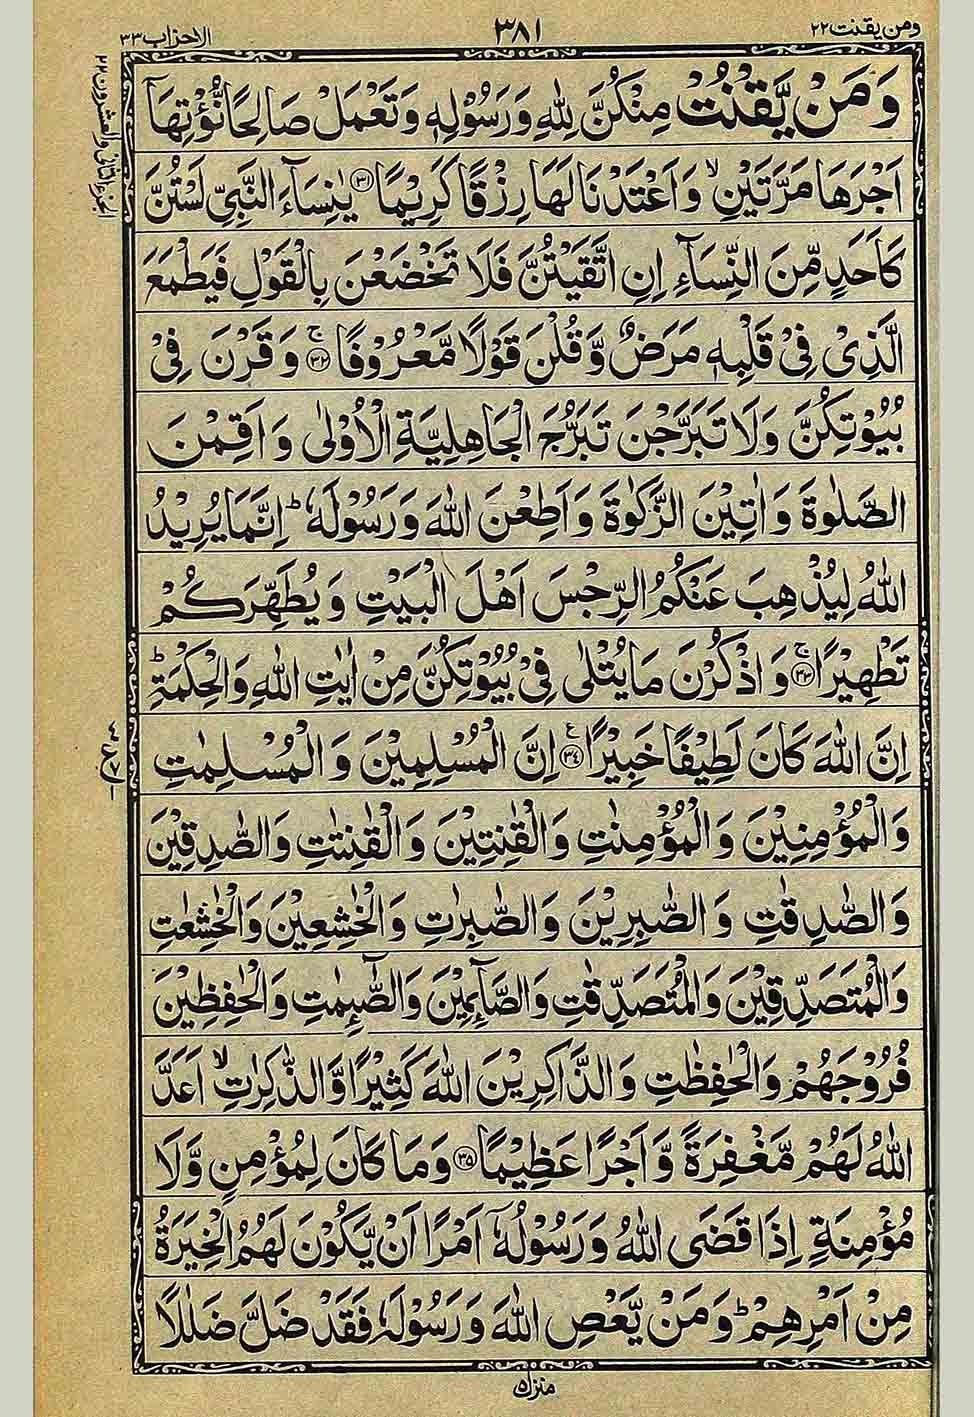 ومن يقنت ٢٢
٣٨١
الاحزاب ٣٣
وَمَنْ يَّقْنُتْ مِنْكُنَّ لِلّٰهِ وَرَسُوْلِهٖ وَتَعْمَلْ صَالِحًا نُّؤْتِهَاۤ
اَجْرَهَا مَرَّتَيْنِ ۙ وَاَعْتَدْنَا لَهَا رِزْقًا كَرِيْمًا ﴿۳۱﴾ يٰنِسَآءَ النَّبِيِّ لَسْتُنَّ
كَاَحَدٍ مِّنَ النِّسَآءِ اِنِ اتَّقَيْتُنَّ فَلَا تَخْضَعْنَ بِالْقَوْلِ فَيَطْمَعَ
الَّذِىْ فِىْ قَلْبِهٖ مَرَضٌ وَّقُلْنَ قَوْلًا مَّعْرُوْفًا ﴿۳۲﴾ ۚ وَقَرْنَ فِىْ
بُيُوْتِكُنَّ وَلَا تَبَرَّجْنَ تَبَرُّجَ الْجَاهِلِيَّةِ الْاُوْلٰى وَاَقِمْنَ
الصَّلٰوةَ وَاٰتِيْنَ الزَّكٰوةَ وَاَطِعْنَ اللّٰهَ وَرَسُوْلَهٗ ؕ اِنَّمَا يُرِيْدُ
اللّٰهُ لِيُذْهِبَ عَنْكُمُ الرِّجْسَ اَهْلَ الْبَيْتِ وَيُطَهِّرَكُمْ
تَطْهِيْرًا ﴿۳۳﴾ ۚ وَاذْكُرْنَ مَا يُتْلٰى فِىْ بُيُوْتِكُنَّ مِنْ اٰيٰتِ اللّٰهِ وَالْحِكْمَةِ ؕ
اِنَّ اللّٰهَ كَانَ لَطِيْفًا خَبِيْرًا ﴿۳۴﴾ ع اِنَّ الْمُسْلِمِيْنَ وَالْمُسْلِمٰتِ
وَالْمُؤْمِنِيْنَ وَالْمُؤْمِنٰتِ وَالْقٰنِتِيْنَ وَالْقٰنِتٰتِ وَالصّٰدِقِيْنَ
وَالصّٰدِقٰتِ وَالصّٰبِرِيْنَ وَالصّٰبِرٰتِ وَالْخٰشِعِيْنَ وَالْخٰشِعٰتِ
وَالْمُتَصَدِّقِيْنَ وَالْمُتَصَدِّقٰتِ وَالصَّآئِمِيْنَ وَالصّٰٓئِمٰتِ وَالْحٰفِظِيْنَ
فُرُوْجَهُمْ وَالْحٰفِظٰتِ وَالذَّاكِرِيْنَ اللّٰهَ كَثِيْرًا وَّالذّٰكِرٰتِ ۙ اَعَدَّ
اللّٰهُ لَهُمْ مَّغْفِرَةً وَّاَجْرًا عَظِيْمًا ﴿۳۵﴾ وَمَا كَانَ لِمُؤْمِنٍ وَّلَا
مُؤْمِنَةٍ اِذَا قَضَى اللّٰهُ وَرَسُوْلُهٗۤ اَمْرًا اَنْ يَّكُوْنَ لَهُمُ الْخِيَرَةُ
مِنْ اَمْرِهِمْ ؕ وَمَنْ يَّعْصِ اللّٰهَ وَرَسُوْلَهٗ فَقَدْ ضَلَّ ضَلٰلًا
منزل ٥